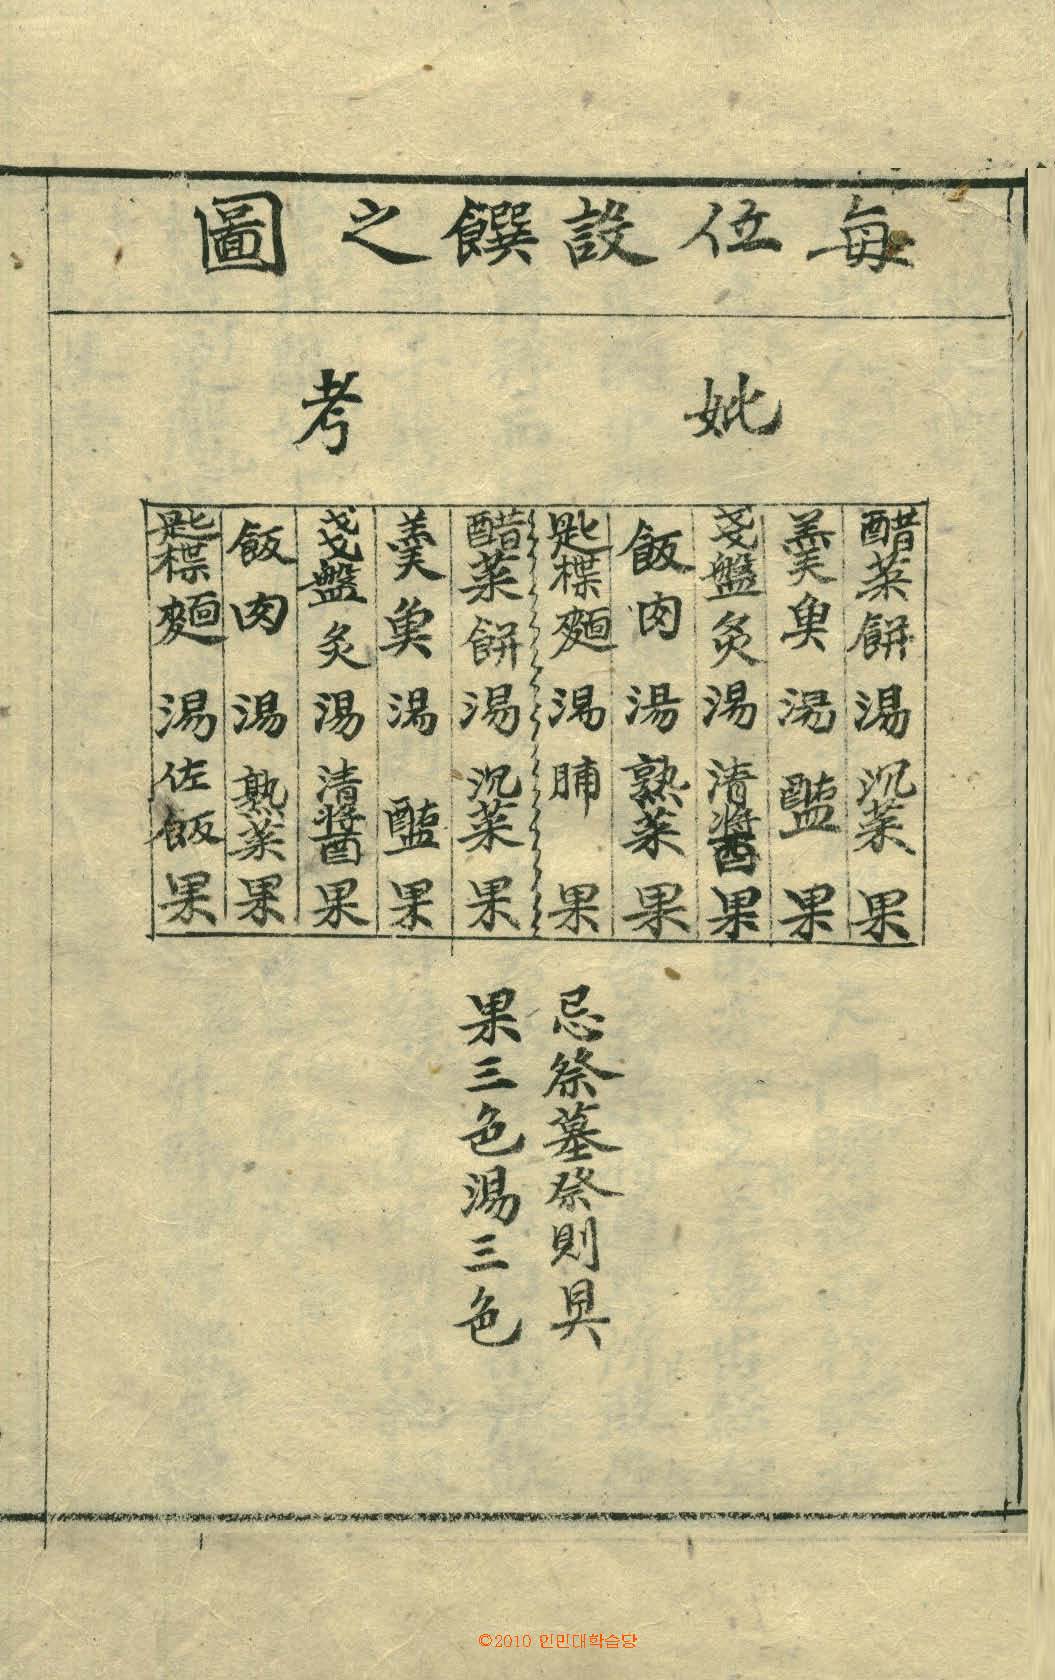 每位設饌之圖
妣
考
醋菜餠湯沉菜果
羹魚湯醢果
盞盤炙湯清醬果
飯肉湯熟菜果
匙楪麵湯脯果
醋菜餠湯沉菜果
羹魚湯醢果
盞盤炙湯清醬果
飯肉湯熟菜果
匙楪麵湯佐飯果
忌祭墓祭則具
果三色湯三色
©2010 인민대학습당